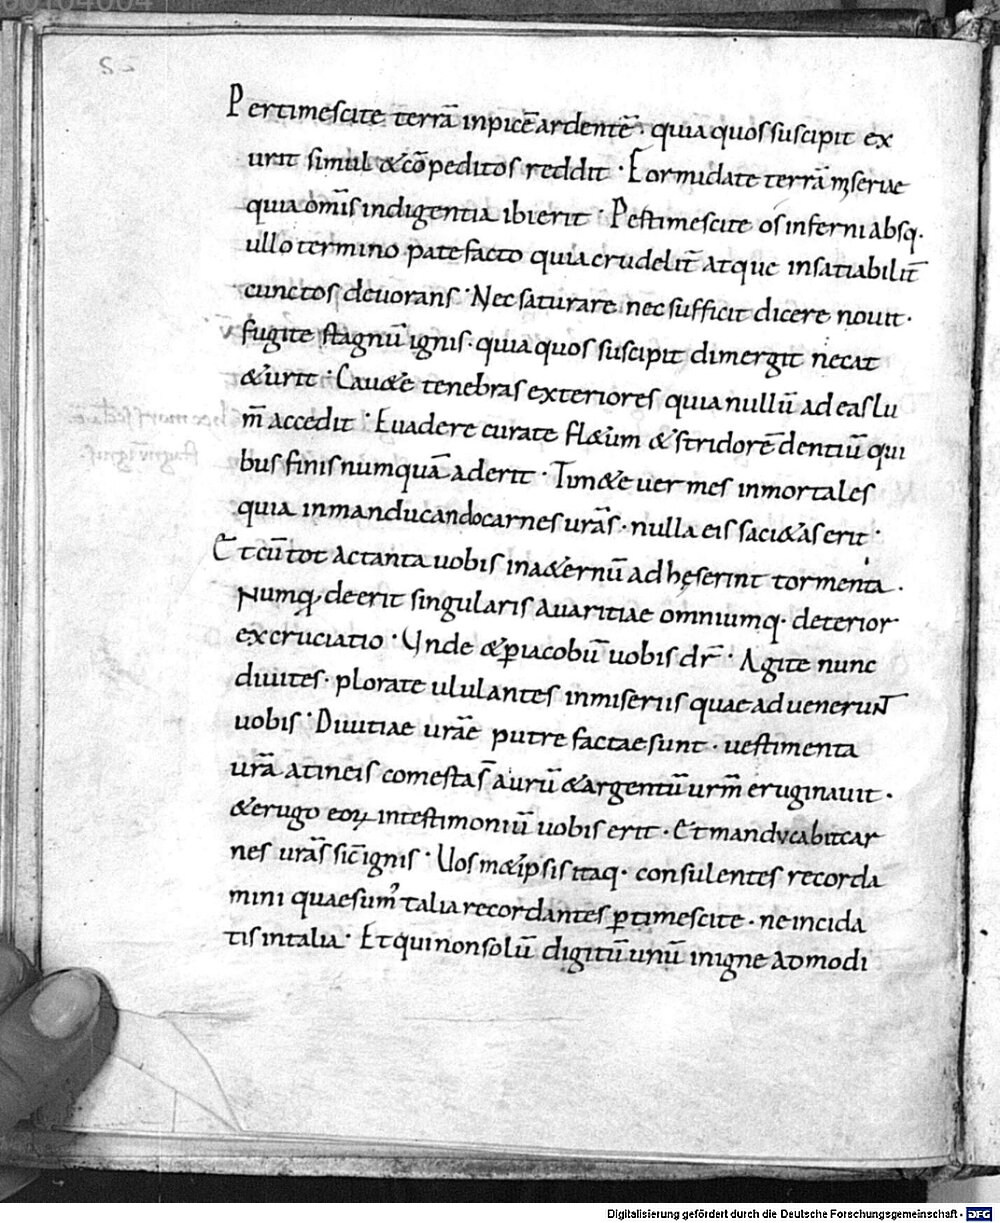 Pertimescite terrā in picē ardentē · quia quos suscipit ex
urit simul & cōpeditos reddit · Formidate terrā miseriae
quia om̄is indigentia ibi erit · Pertimescite os inferni absq·
ullo termino patefacto quia crudelit̄ atque insatiabilit̄
cunctos deuorans · Nec saturare nec sufficit dicere nouit ·
fugite stagnū ignis · quia quos suscipit dimergit necat
& urit · Cau&e tenebras exteriores quia nullū ad eas lu
m̄ accedit · Euadere curate fl&um & stridorē dentiū qui
bus finis numquā aderit · Tim&e uermes inmortales
quia in manducando carnes urās · nulla eis saci&as erit ·
Et cū tot ac tanta uobis in a&ernū adhęserint tormenta ·
Numq̄· deerit singularis auaritiae omniumq· deterior
excruciatio · Unde & p iacobū uobis dr̄ · Agite nunc
diuites · plorate ululantes in miseriis quae aduenerunt
uobis · Diuitiae urāe putrefactae sunt · uestimenta
urā a tineis comesta s̄ aurū & argentū urm̄ eruginauit ·
& erugo eoꝝ in testimoniū uobis erit · Et manducabit car
nes urās sic̄ ignis · Uos m&ipsis itaq· consulentes recorda
mini quaesum᾽ talia recordantes ptimescite · ne incida
tis in talia · Et qui non solū digitū unū in igne ad modi
Digitalisierung gefördert durch die Deutsche Forschungsgemeinschaft · DFG